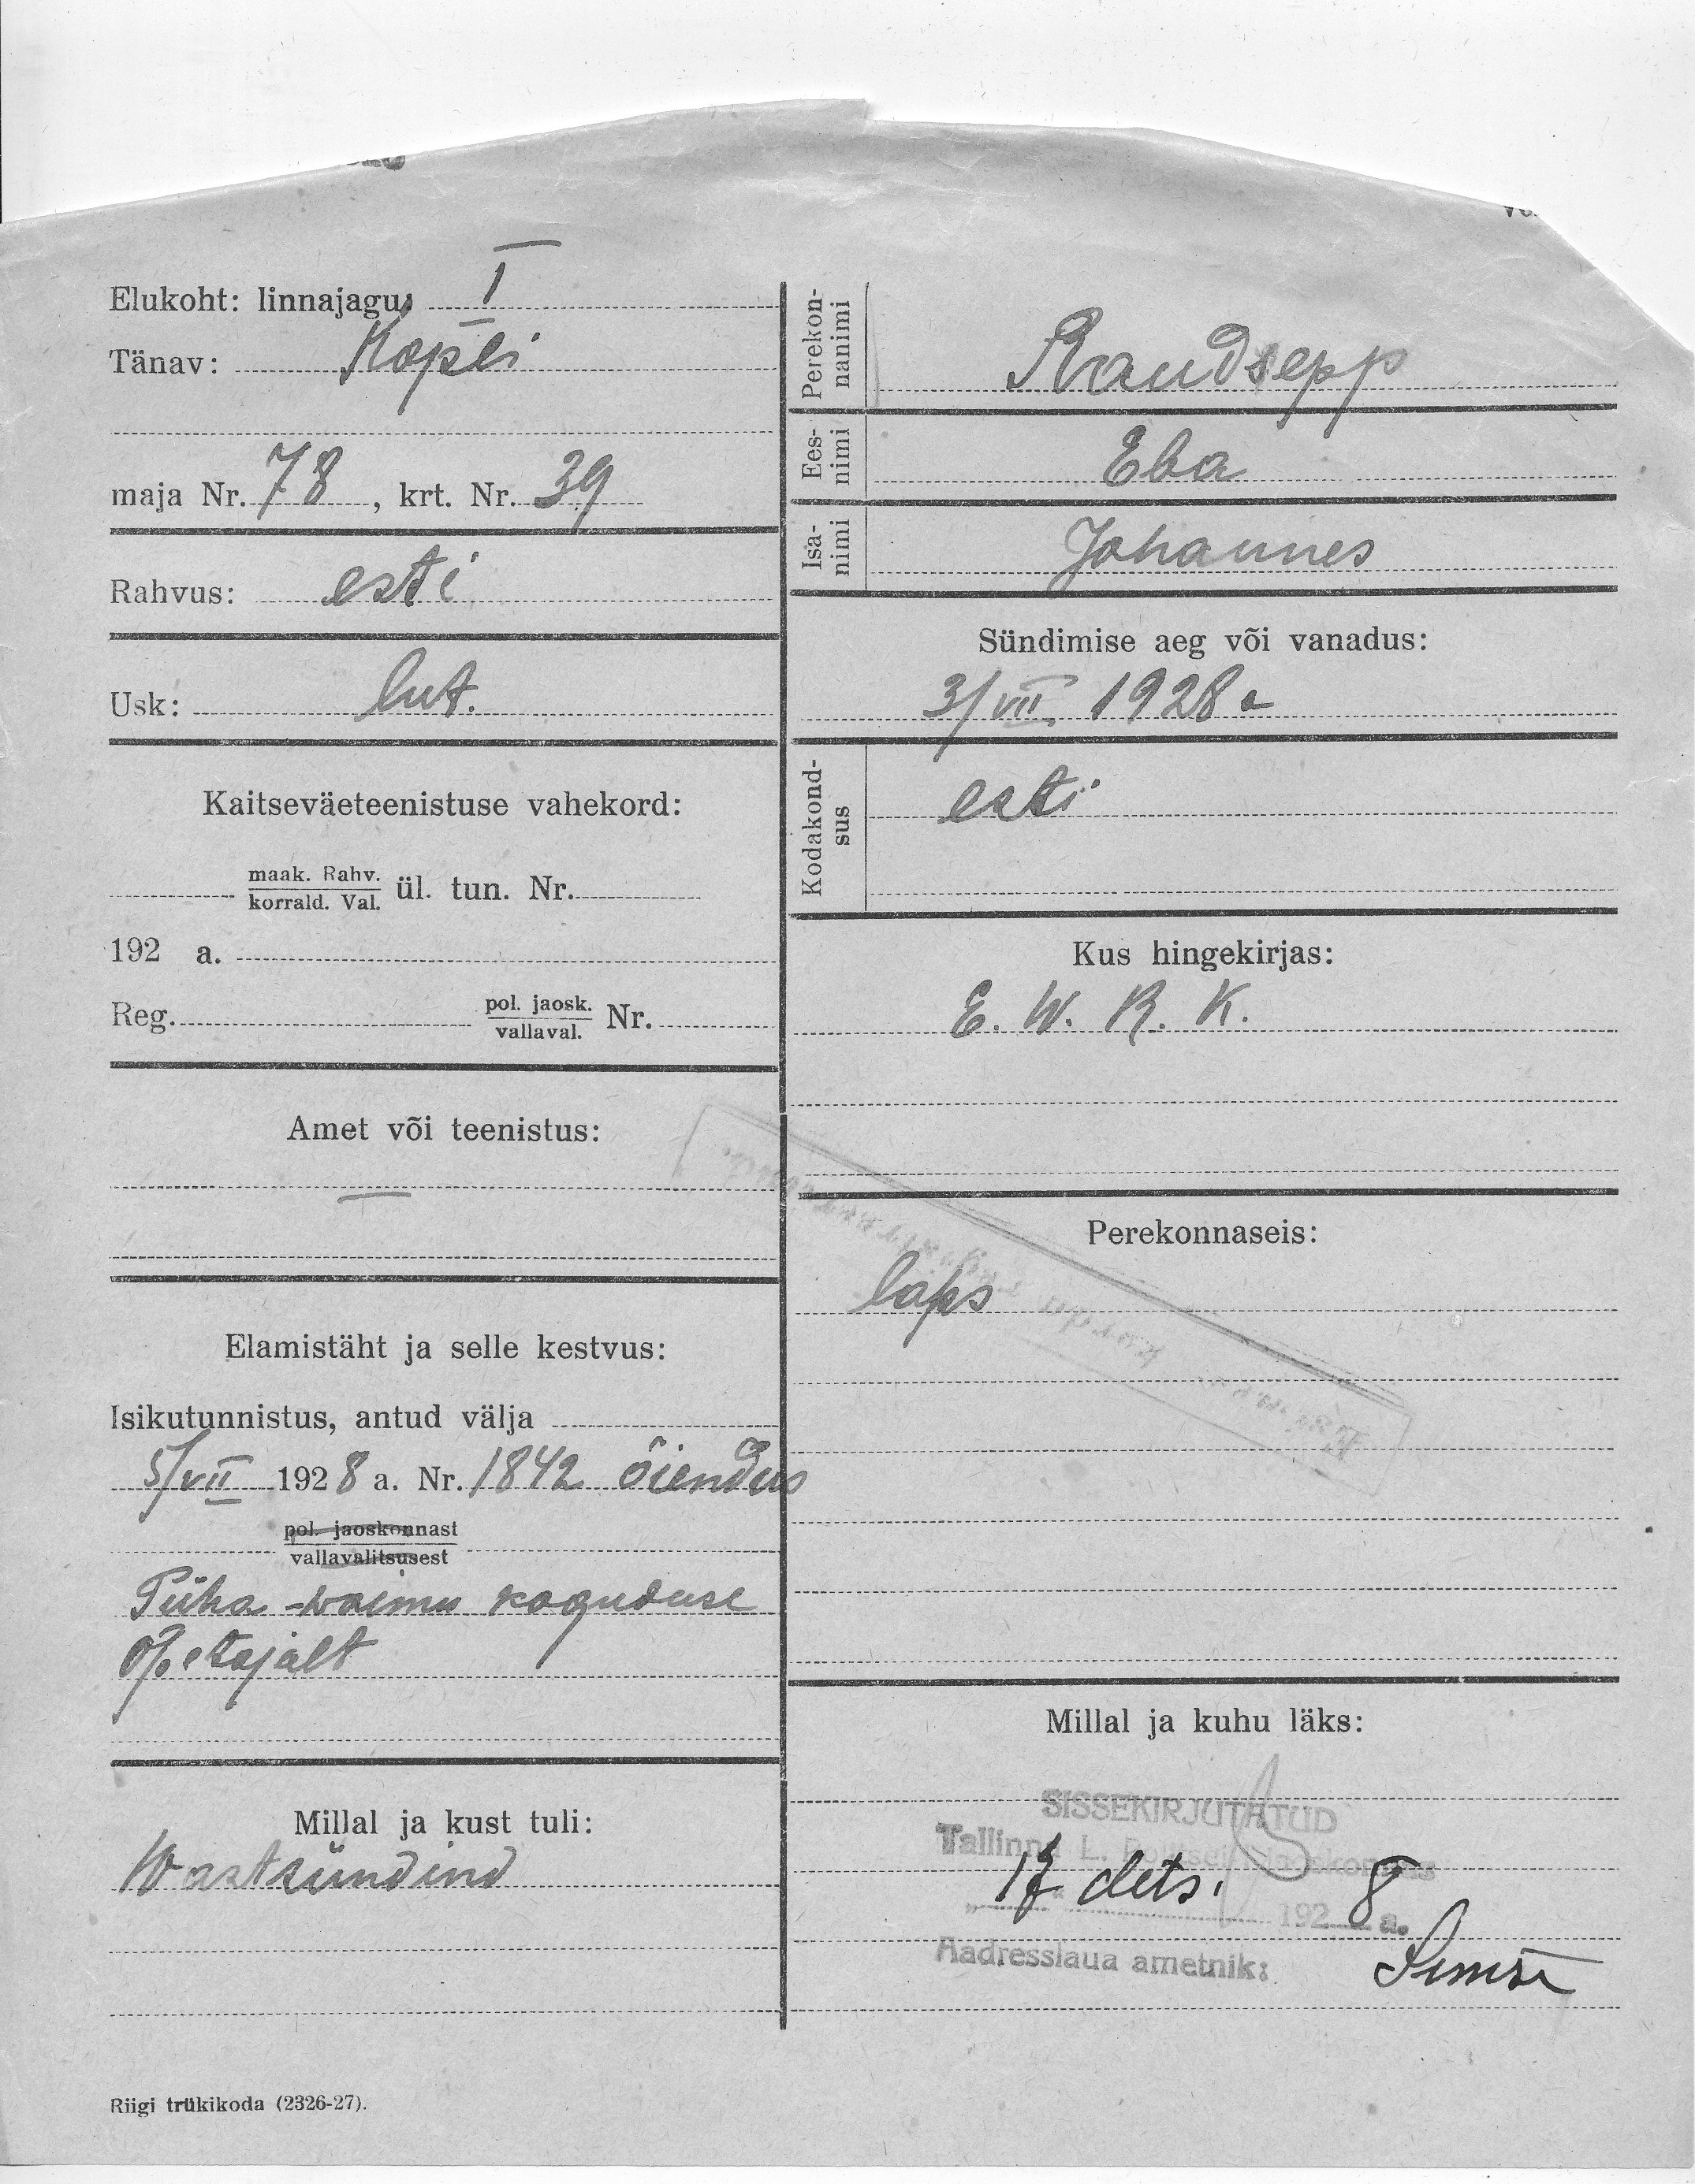 Elukoht: linnajagu: I
Tänav: Kopli
maja Nr. 78, krt. Nr. 39
Rahvus: esti
Usk: lut.
Kaitseväeteenistuse vahekord:
maak. Rahv.
korrald. Val. ül. tun. Nr.
192 a.
Reg. pol. jaosk.
vallaval. Nr.
Amet või teenistus:
—
Elamistäht ja selle kestvus:
Isikutunnistus, antud välja
5/VII 1928 a. Nr. 1842 õiendus
pol. jaoskonnast
vallavalitsusest
Püha-waimu koguduse
õpetajalt
Millal ja kust tuli:
Wastsündind
Perekon-
nanimi
Raudsepp
Ees-
nimi
Eba
Isa-
nimi
Johannes
Sündimise aeg või vanadus:
3/VII 1928 a
Kodakond-
sus
esti
Kus hingekirjas:
E. W. R. K.
Perekonnaseis:
laps
Millal ja kuhu läks:
SISSEKIRJUTATUD
Tallinna L.
17 dets. 1928 a.
Aadresslaua ametnik:
Riigi trükikoda (2326-27).